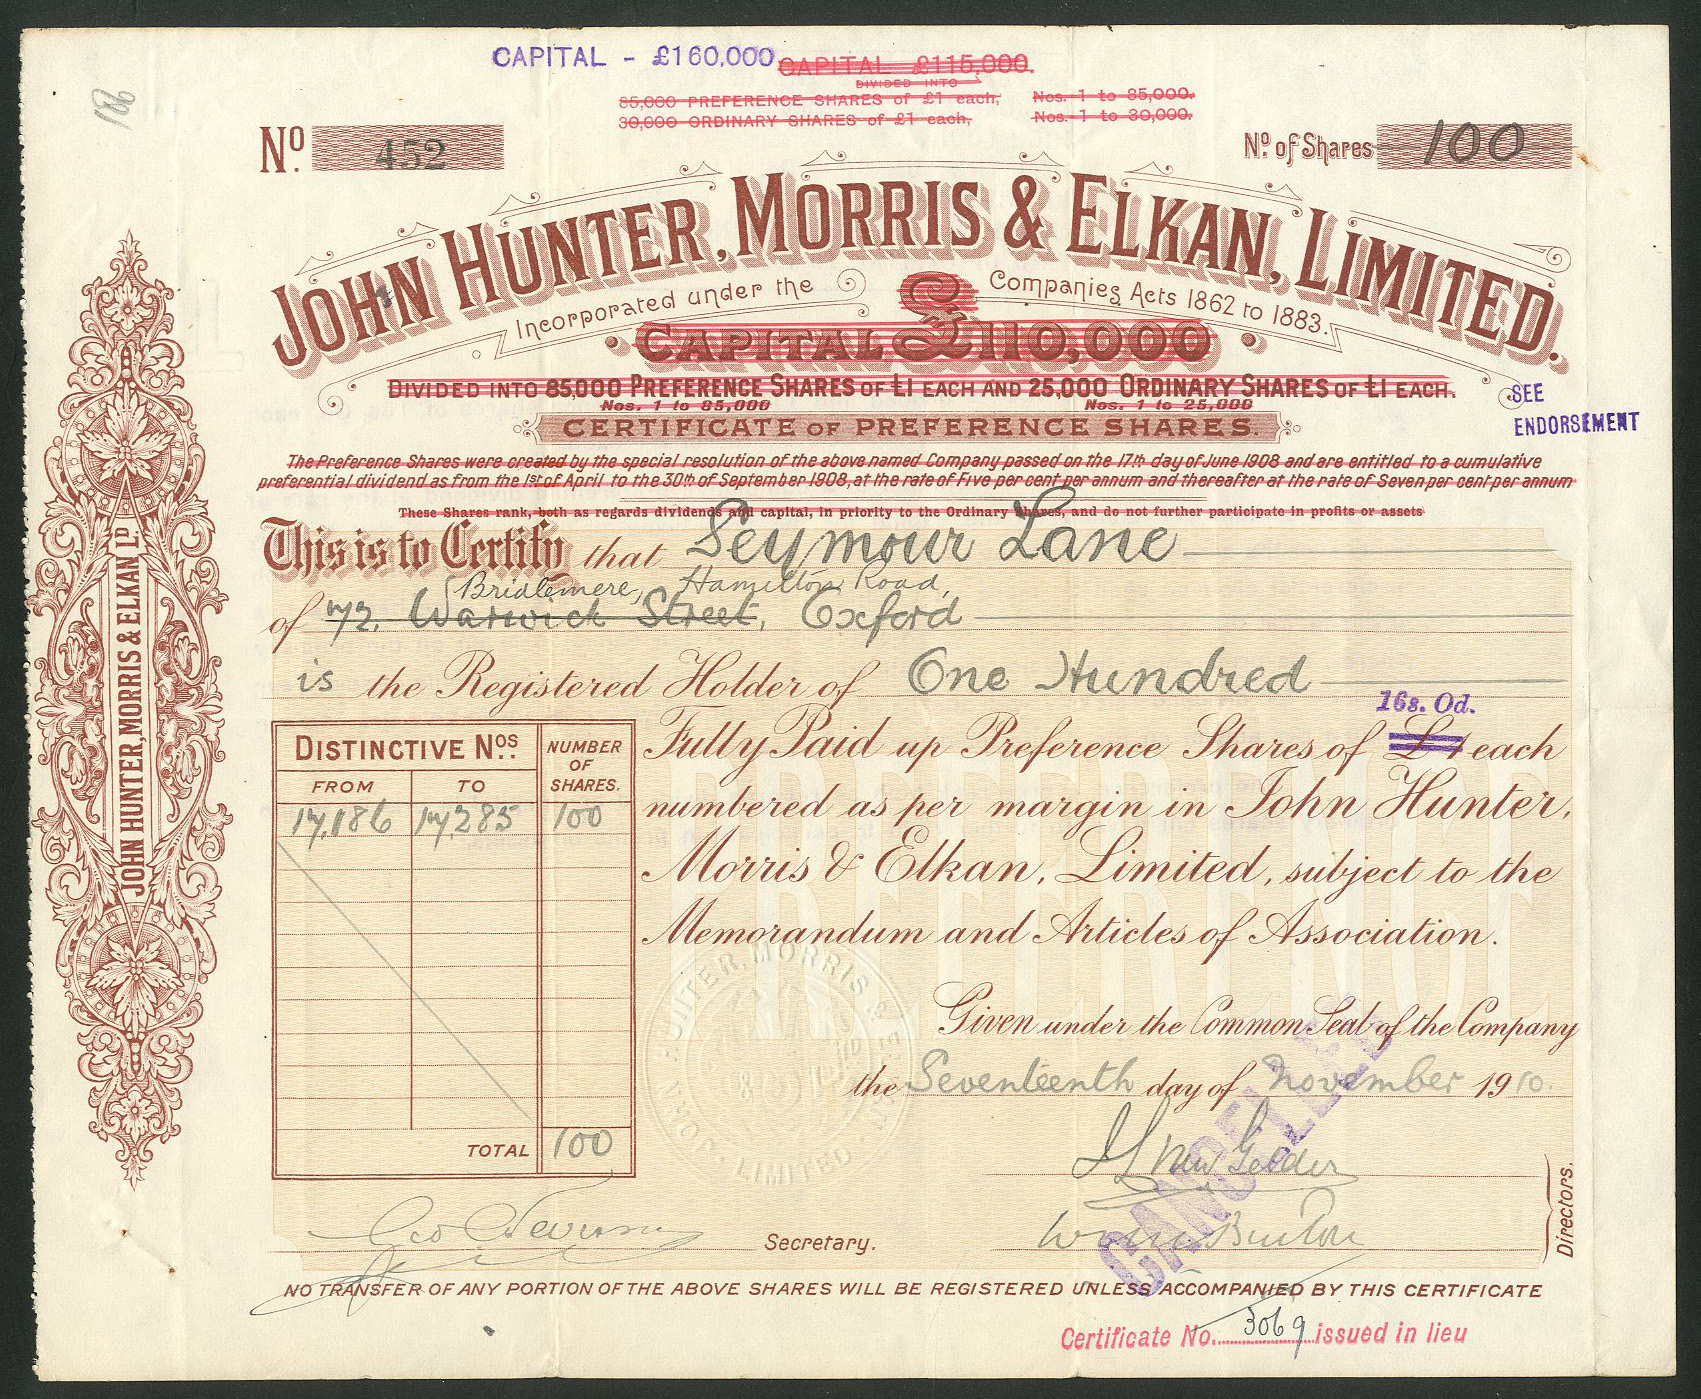 CAPITAL - £160,000
CAPITAL £115,000.
DIVIDED INTO
85,000 PREFERENCE SHARES of £1 each, Nos. 1 to 85,000.
30,000 ORDINARY SHARES of £1 each, Nos. 1 to 30,000.
186
No. 452
No. of Shares 100
JOHN HUNTER, MORRIS & ELKAN, LIMITED.
Incorporated under the Companies Acts 1862 to 1883.
CAPITAL £110,000
DIVIDED INTO 85,000 PREFERENCE SHARES OF £1 EACH AND 25,000 ORDINARY SHARES OF £1 EACH.
Nos. 1 to 85,000 Nos. 1 to 25,000
SEE ENDORSEMENT
CERTIFICATE OF PREFERENCE SHARES.
The Preference Shares were created by the special resolution of the above named Company passed on the 17th day of June 1908 and are entitled to a cumulative
preferential dividend as from the 1st of April to the 30th of September 1908, at the rate of Five per cent per annum and thereafter at the rate of Seven per cent per annum
These Shares rank, both as regards dividends and capital, in priority to the Ordinary Shares, and do not further participate in profits or assets
This is to Certify that Seymour Lane
Bridlemere, Hamilton Road,
of 72, Warwick Street, Oxford
is the Registered Holder of One Hundred
16s. 0d.
Fully Paid up Preference Shares of £1 each
numbered as per margin in John Hunter,
Morris & Elkan, Limited, subject to the
Memorandum and Articles of Association.
DISTINCTIVE NOS. NUMBER OF SHARES.
FROM TO
17,186 17,285 100
TOTAL 100
JOHN HUNTER, MORRIS & ELKAN LD.
PREFERENCE
JOHN HUNTER, MORRIS & ELKAN LIMITED
Given under the Common Seal of the Company
the Seventeenth day of November 1910.
CANCELLED
Directors.
Geo
Secretary.
NO TRANSFER OF ANY PORTION OF THE ABOVE SHARES WILL BE REGISTERED UNLESS ACCOMPANIED BY THIS CERTIFICATE
Certificate No. 3069 issued in lieu